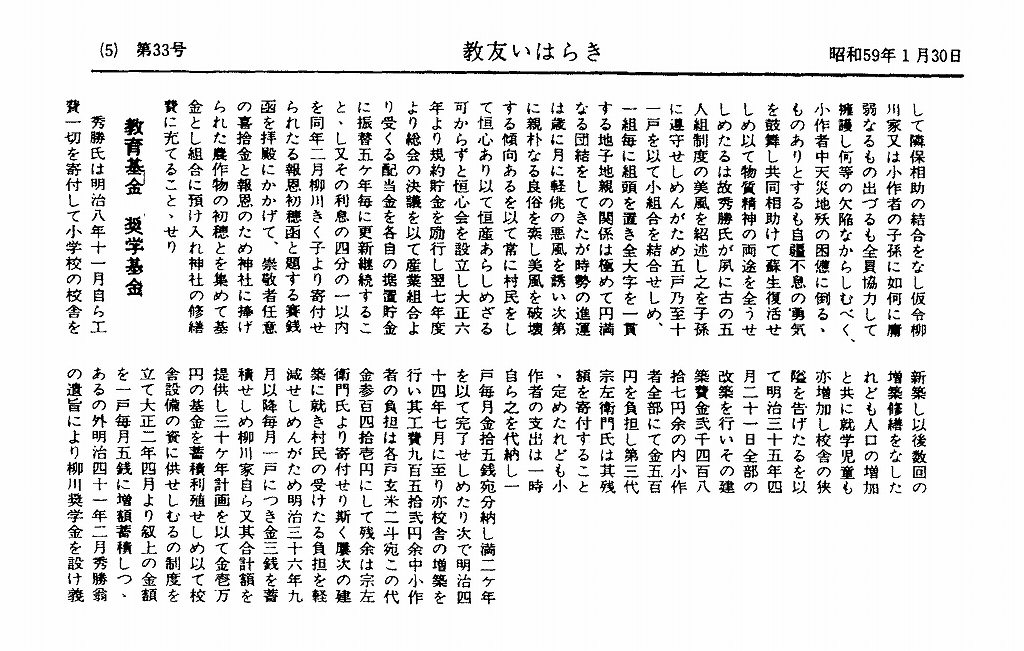 (5) 第33号
教友いはらき
昭和59年1月30日
して隣保相助の結合をなし仮令柳
川家又は小作者の子孫に如何に庸
弱なるもの出づるも全員協力して
擁護し何等の欠陥なからしむべく、
小作者中天災地殃の困憊に倒るゝ
ものありとするも自疆不息の勇気
を鼓舞し共同相助けて蘇生復活せ
しめ以て物質精神の両途を全うせ
しめたるは故秀勝氏が夙に古の五
人組制度の美風を紹述し之を子孫
に遵守せしめんがため五戸乃至十
一戸を以て小組合を結合せしめ、
一組毎に組頭を置き全大字を一貫
する地子地親の関係は極めて円満
なる団結をしてきたが時勢の進運
は歳に月に軽佻の悪風を誘い次第
に親朴なる良俗を紊し美風を破壊
する傾向あるを以て常に村民をし
て恒心あり以て恒産あらしめざる
可からずと恒心会を設立し大正六
年より規約貯金を励行し翌七年度
より総会の決議を以て産業組合よ
り受くる配当金を各自の据置貯金
に振替五ケ年毎に更新継続するこ
とゝし又その利息の四分の一以内
を同年二月柳川きく子より寄付せ
られたる報恩初穂函と題する賽銭
函を拝殿にかかげて、崇敬者任意
の喜拾金と報恩のため神社に捧げ
られた農作物の初穂とを集めて基
金とし組合に預け入れ神社の修繕
費に充てることゝせり
教育基金 奨学基金
秀勝氏は明治八年十一月自ら工
費一切を寄付して小学校の校舎を
新築し以後数回の
増築修繕をなした
れども人口の増加
と共に就学児童も
亦増加し校舎の狭
隘を告げたるを以
て明治三十五年四
月二十一日全部の
改築を行いその建
築費金弐千四百八
拾七円余の内小作
者全部にて金五百
円を負担し第三代
宗左衛門氏は其残
額を寄付すること
ゝ定めたれども小
作者の支出は一時
自ら之を代納し一
戸毎月金拾五銭宛分納し満二ケ年
を以て完了せしめたり次で明治四
十四年七月に至り亦校舎の増築を
行い其工費九百五拾弐円余中小作
者の負担は各戸玄米二斗宛この代
金参百四拾壱円にして残余は宗左
衛門氏より寄付せり斯く屢次の建
築に就き村民の受けたる負担を軽
減せしめんがため明治三十六年九
月以降毎月一戸につき金三銭を蓄
積せしめ柳川家自ら又其合計額を
提供し三十ケ年計画を以て金壱万
円の基金を蓄積利殖せしめ以て校
舎設備の資に供せしむるの制度を
立て大正二年四月より叙上の金額
を一戸毎月五銭に増額蓄積しつゝ
あるの外明治四十一年二月秀勝翁
の遺旨により柳川奨学金を設け義